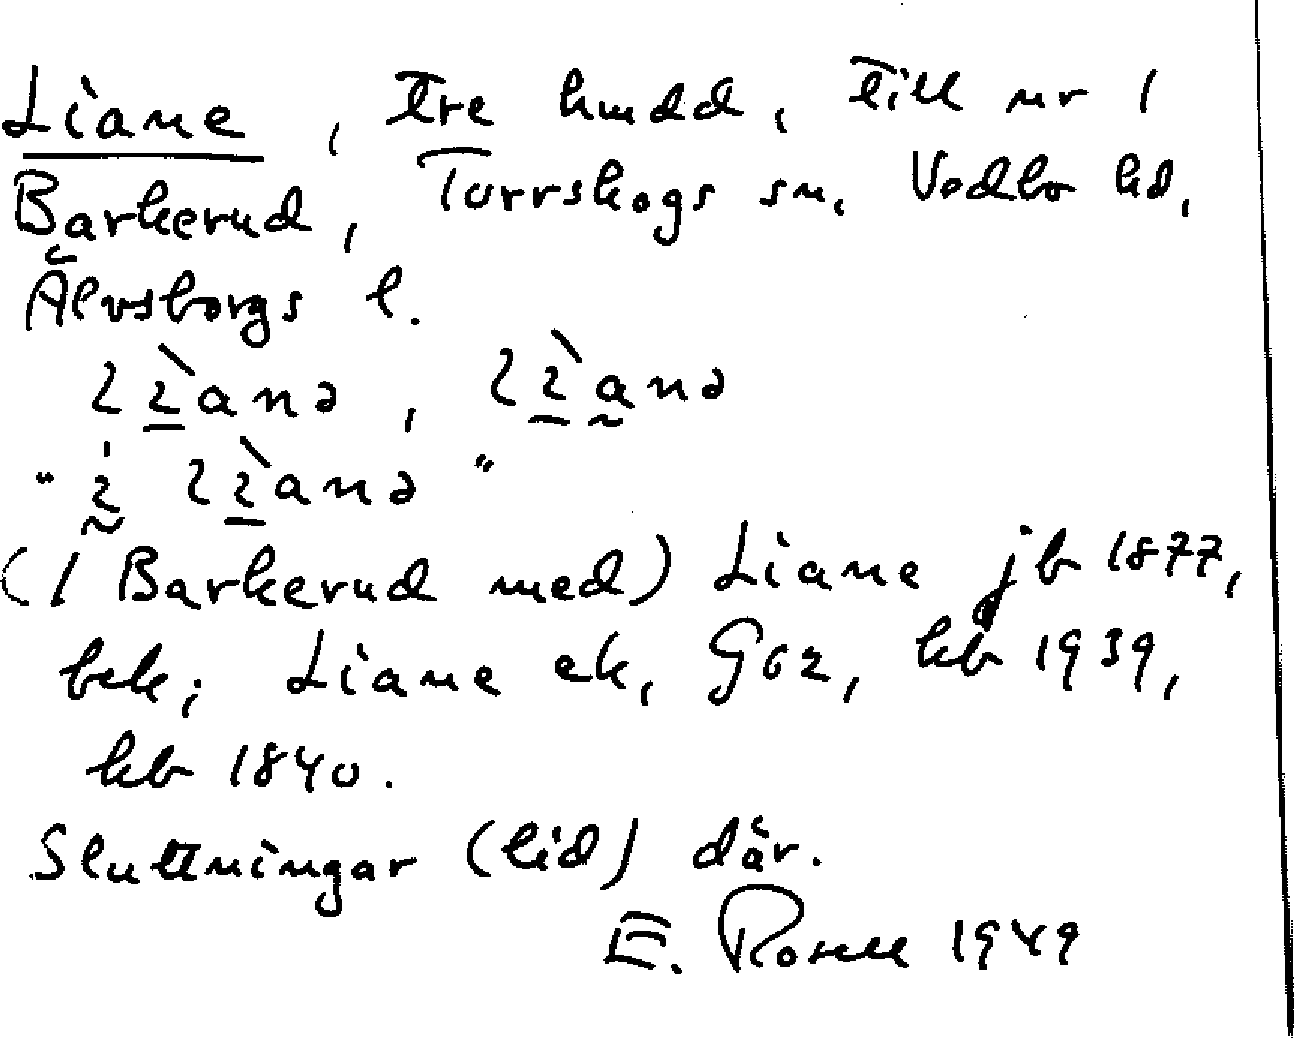 Liane, tre hmdd, till nr 1
Barkerud, Torrskogs sn, Vedbo hd,
Älvsborgs l.
(1 Barkerud med) Liane jb 1877,
bek; Liane ek, Goz, kb 1939,
kb 1840.
Sluttningar (lid) där.
E. Rosell 1949